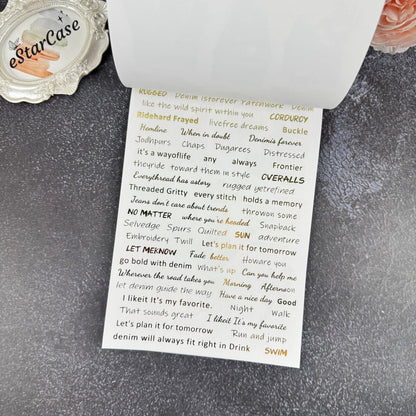 eStarCase
RUGGED Denim isforever Patchwork Denim
like the wild spirit within you CORDUROY
Ridehard Frayed livefree dreams Buckle
Hemline When in doubt Denimis forever
Jodhpurs Chaps Dugarees Distressed
it's a wayoflife any always Frontier
theyride toward them in style OVERALLS
Everythread has astory rugged yetrefined
Threaded Gritty every stitch holds a memory
Jeans don't care about trends throwon some
NO MATTER where you're headed Snapback
Selvedge Spurs Quilted SUN adventure
Embroidery Twill Let's plan it for tomorrow
LET MEKNOW Fade better Howare you
go bold with denim What's up Can you help me
Wherever the road takes you Morning Afternoon
let denim guide the way Have a nice day Good
I likeit It's my favorite. Night Walk
That sounds great I likeit It's my favorite
Let's plan it for tomorrow Run and jump
denim will always fit right in Drink SWIM